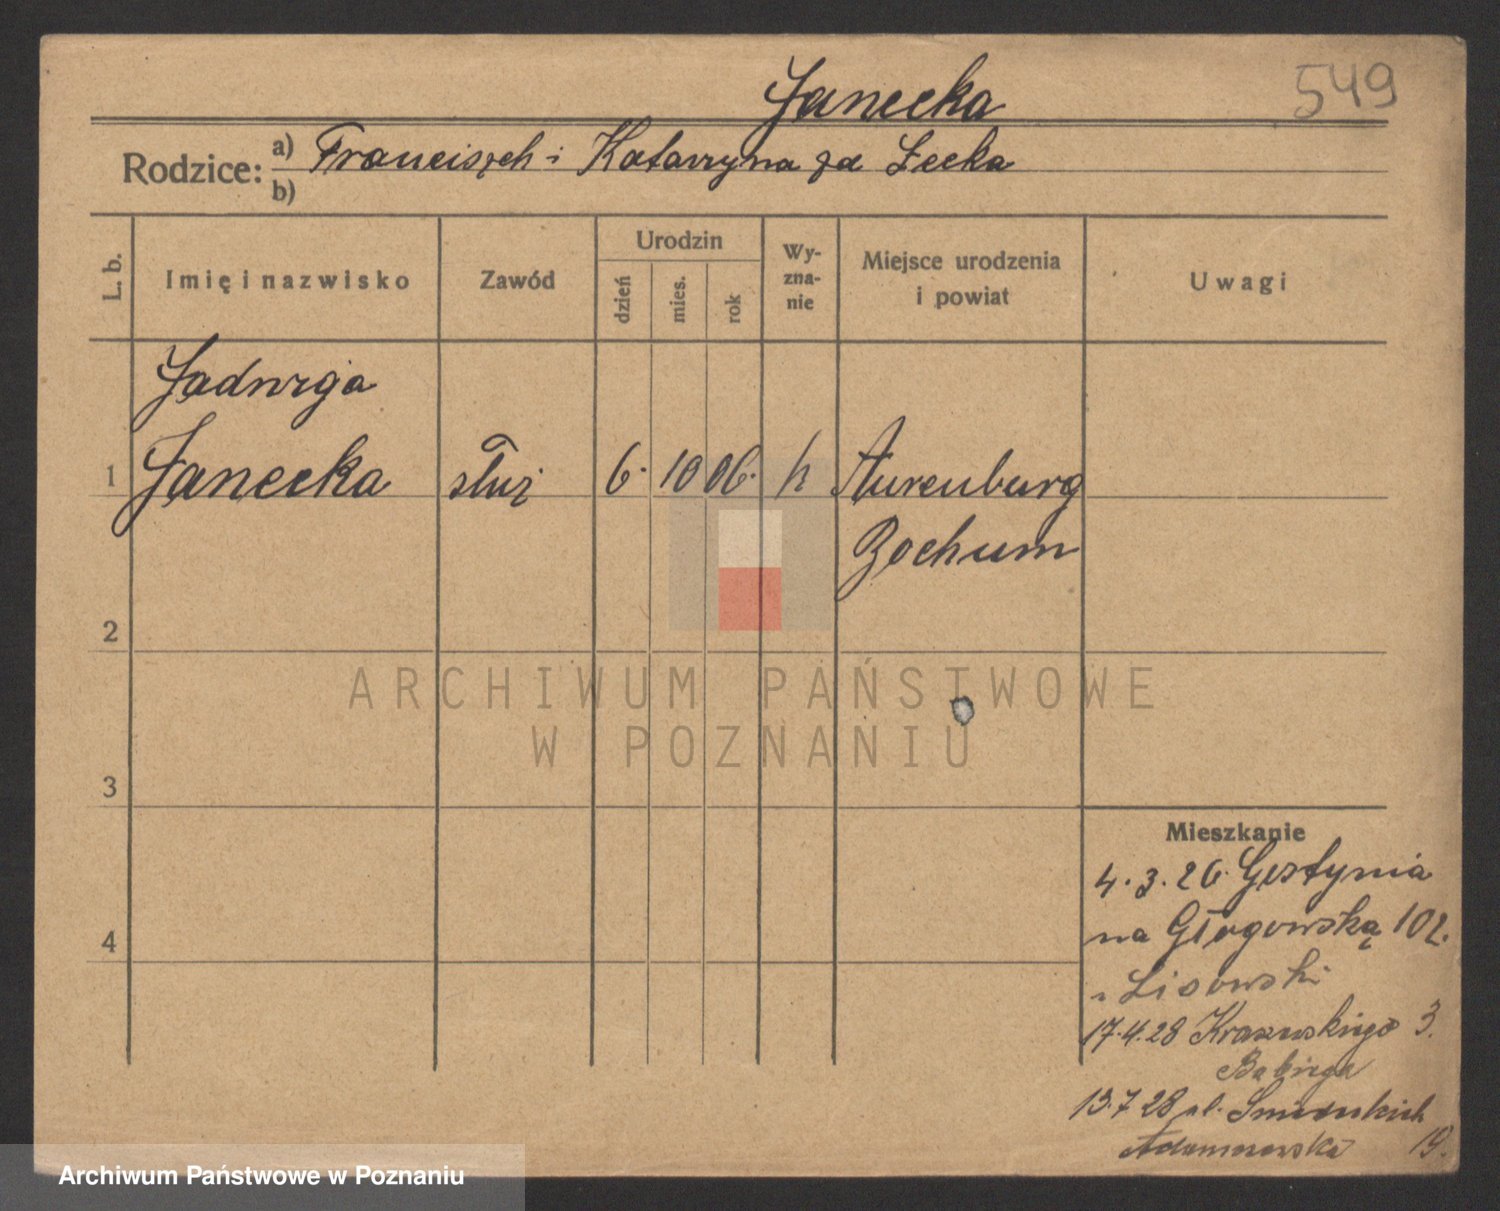 Janecka
549
Rodzice: a) Franciszek i Katarzyna za Lecka
b)
L. b.
Imię i nazwisko
Zawód
Urodzin
dzień
mies.
rok
Wy-
zna-
nie
Miejsce urodzenia
i powiat
Uwagi
Jadwiga
1 Janecka służ 6. 10 06. k
Bochum
2
ARCHIWUM PAŃSTWOWE
W POZNANIU
3
Mieszkanie
4.3.26. Gostynia
na Głogowską 102.
Lisowski
4
17.4.28 Kraszewskiego 3.
13.7.28 pl.
19.
Archiwum Państwowe w Poznaniu